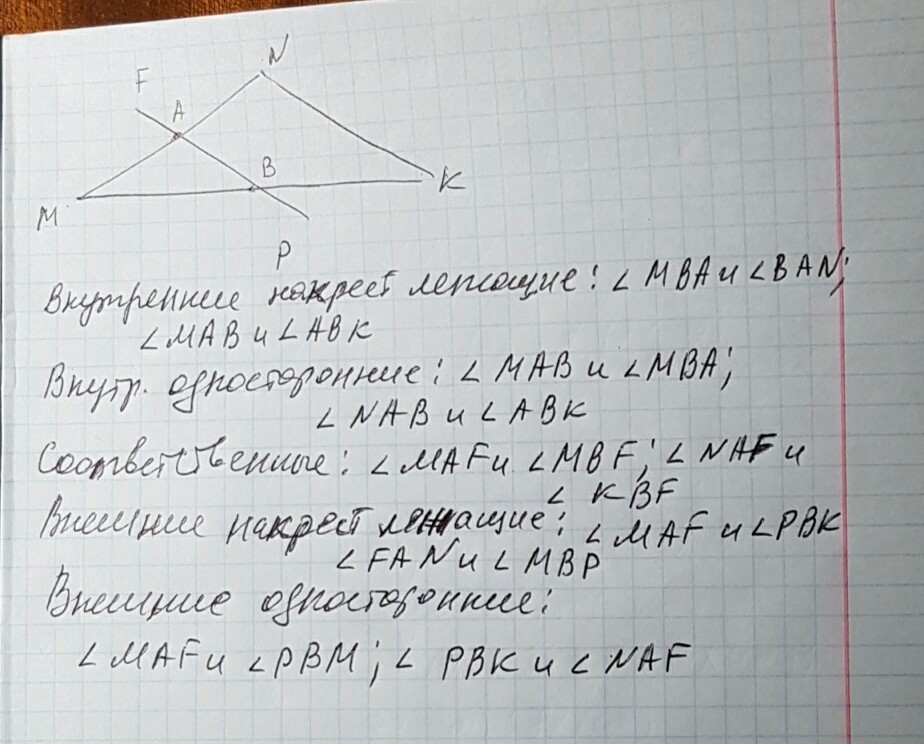 N
F
A
B
K
M
P
Внутренние накрест лежащие: ∠MBA и ∠BAN;
∠MAB и ∠ABK
Внутр. односторонние: ∠MAB и ∠MBA;
∠NAB и ∠ABK
Соответственные: ∠MAF и ∠MBF; ∠NAF и
∠KBF
Внешние накрест лежащие: ∠MAF и ∠PBK
∠FAN и ∠MBP
Внешние односторонние:
∠MAF и ∠PBM; ∠PBK и ∠NAF